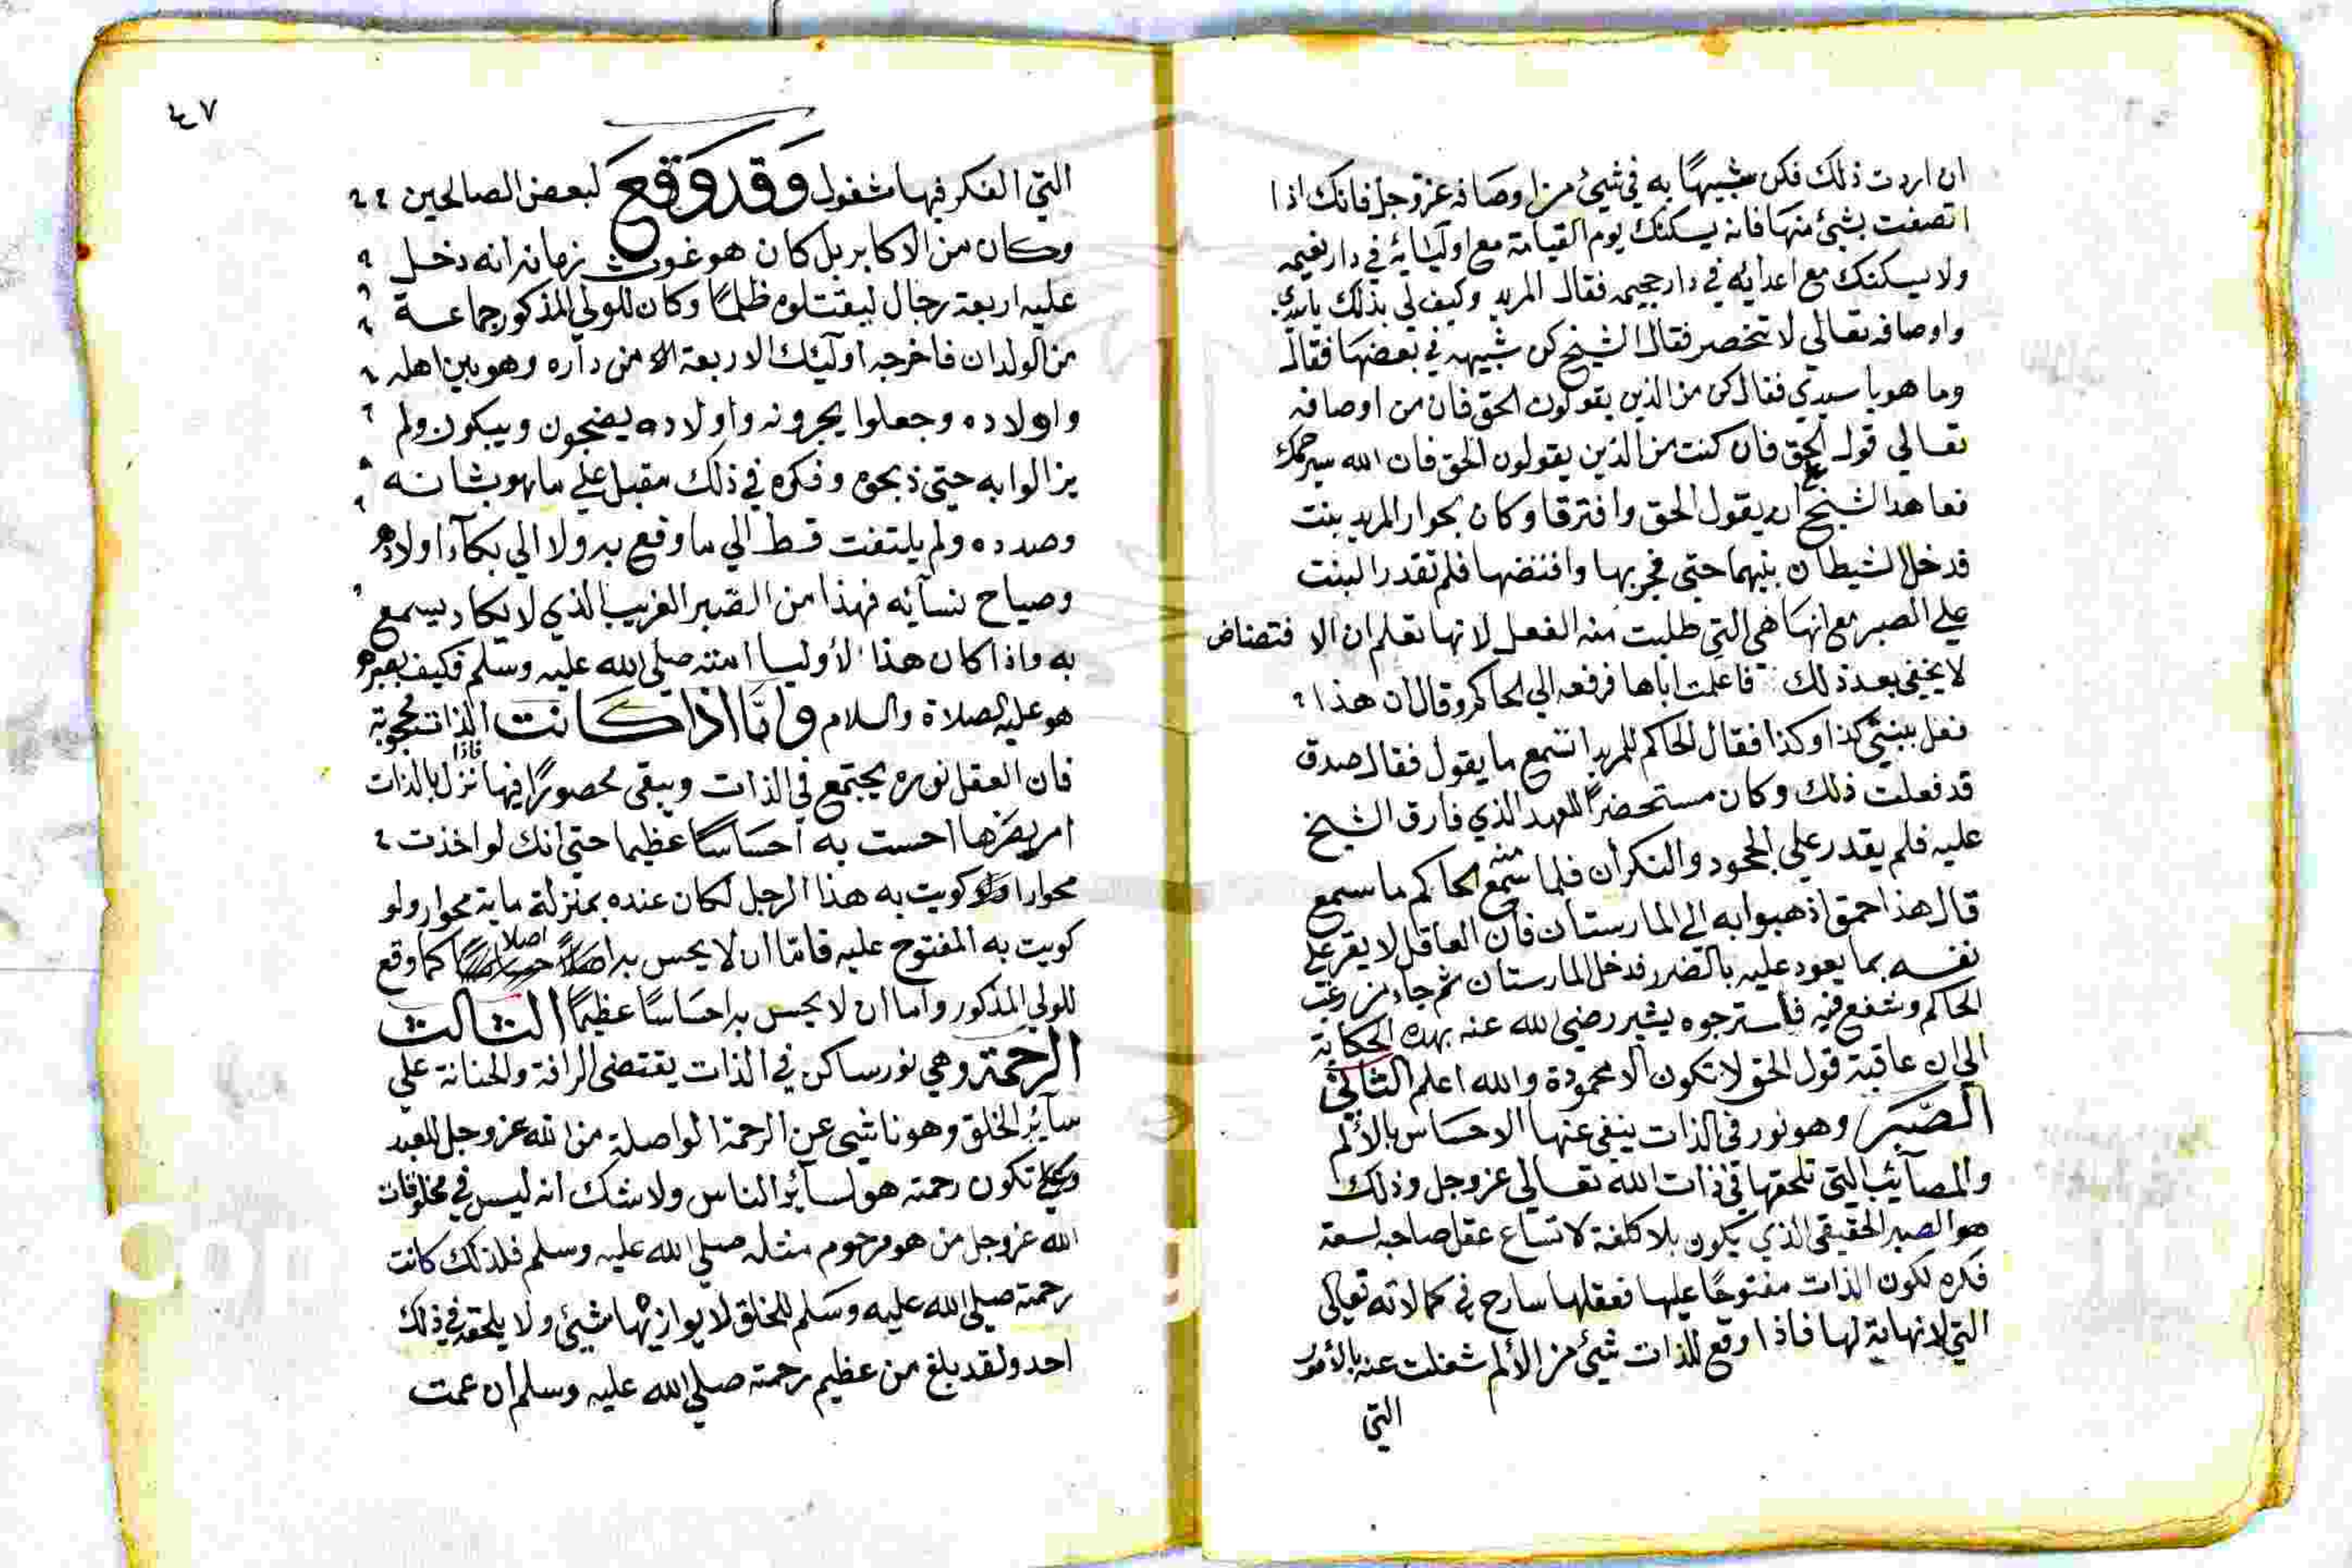 ان اردت ذلك فكن شبيها به في شيئ من اوصافه عز وجل فانك اذا
اتصفت بشيئ منها فانه يسكنك يوم القيامة مع اوليائه في دار نعيمه
ولا يسكنك مع اعدايه في دار جحيمه فقال المريد وكيف لي بذلك ياسيدي
واوصافه تعالي لا تنحصر فقال الشيخ كن شبيهه في بعضها فقال
وما هو يا سيدي فقال كن من الذين يقولون الحق فان من اوصافه
تعالي قول الحق فان كنت من الذين يقولون الحق فان الله سيرحمك
فعاهد الشيخ علي ان يقول الحق وافترقا وكان بجوار المريد بنت
فدخل الشيطان بينهما حتي فجر بها وافتضها فلم تقدر البنت
علي الصبر مع انها هي التي طلبت منه الفعل لانها تعلم ان الا فتضاض
لا يخفي بعد ذلك فاعلمت اباها فرفعه الي الحاكم وقال ان هذا
فعل ببنتي كذا وكذا فقال الحاكم للمريد اتسمع ما يقول فقال صدق
قد فعلت ذلك وكان مستحضرا للعهد الذي فارق الشيخ
عليه فلم يقدر علي الجحود والنكران فلما سمع منه الحاكم ما سمع
قال هذا احمق اذهبوا به الي المارستان فان العاقل لا يقر علي
نفسه بما يعود عليه بالضرر فدخل المارستان ثم جاء من رغب
الحاكم وشفع فيه فاسترجوه يشير رضي الله عنه بهذه الحكاية
الي ان عاقبة قول الحق لا تكون الا محمودة والله اعلم الثاني
الصبر وهو نور في الذات ينفي عنها الاحساس بالألم
والمصآئب التي تلحقها في ذات الله تعالي عز وجل وذلك
هو الصبر الحقيقي الذي يكون بلا كلفة لاتساع عقل صاحبه لسعة
فكره لكون الذات مفتوحا عليها فعقلها سارح في كمالاته تعالي
التي لا نهاية لها فاذا وقع للذات شيئ من الألم شغلت عنه بالأمور
التي
٤٧
التي الفكر فيها مشغول وقد وقع لبعض الصالحين
وكان من الاكابر بل كان هو غوث زمانه انه دخل
عليه اربعة رجال ليقتلوه ظلما وكان للولي المذكور جماعة
من الولدان فاخرجه اولئك الاربعة من داره وهو بين اهله
واولاده وجعلوا يجرونه واولاده يضجون ويبكون ولم
يزالوا به حتي ذبحوه وفكره في ذلك مقبل علي ما هو بشانه
وصدده ولم يلتفت قط الي ما وقع به ولا الي بكآء اولاده
وصياح نسآئه فهذا من الصبر الغريب الذي لا يكاد يسمع
به واذا كان هذا لأوليا امته صلي الله عليه وسلم فكيف بصبره
هو عليه الصلاة والسلام واما اذا كانت الذات محجوبة
فان العقل نوره يجتمع في الذات ويبقي محصورا فيها فاذا نزل بالذات
امر يضرها احست به احساسا عظيما حتي انك لو اخذت
محوارا وكويت به هذا الرجل لكان عنده بمنزلة ماية محوار ولو
كويت به المفتوح عليه فاما ان لا يحس به اصلا كما وقع
للولي المذكور واما ان لا يحس به احساسا عظيما الثالث
الرحمة وهي نور ساكن في الذات يقتضي الرافة والحنانة علي
سآئر الخلق وهو ناشي عن الرحمة الواصلة من الله عز وجل للعبد
تكون رحمته هو لسآئر الناس ولا شك انه ليس في مخلوقات
الله عز وجل من هو مرحوم مثله صلي الله عليه وسلم فلذلك كانت
رحمته صلي الله عليه وسلم للخلق لا يوازيها شيئ ولا يلحقه في ذلك
احد ولقد بلغ من عظيم رحمته صلي الله عليه وسلم ان عمت